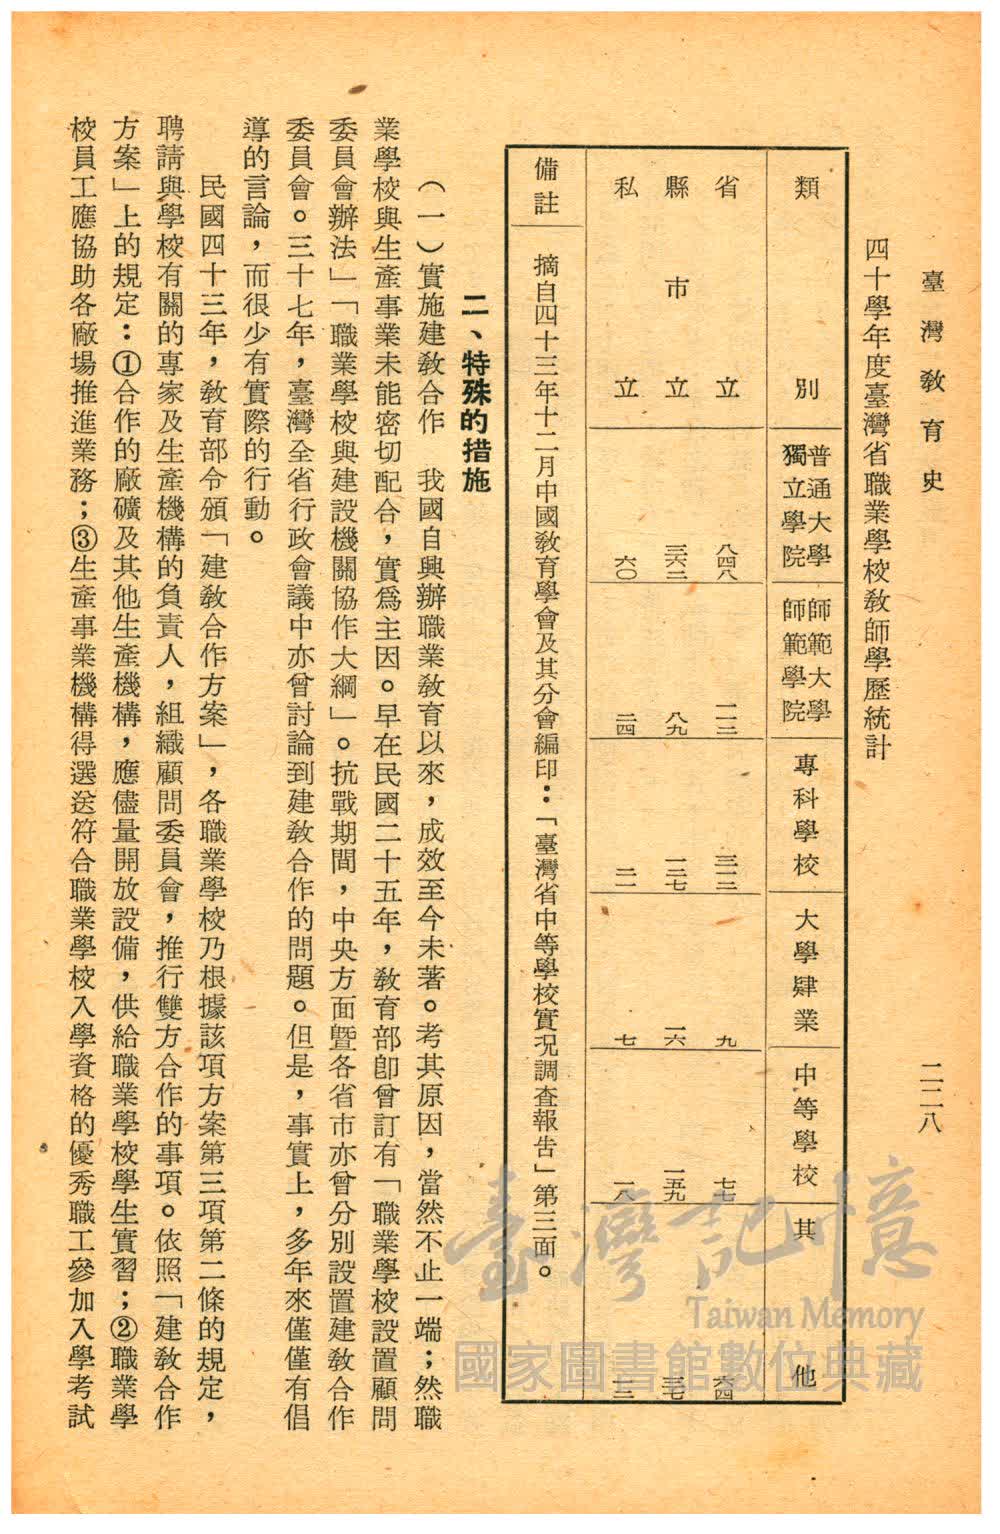 臺灣教育史
二二八
四十學年度臺灣省職業學校教師學歷統計
類別
普通大學
獨立學院
師範大學
師範學院
專科學校
大學肄業
中等學校
其他
省立
八四八
一一三
三一三
九
七七
六四
縣市立
三六三
八九
一二七
一六
一五九
三七
私立
六〇
二四
二一
七
一八
三
備註
摘自四十三年十二月中國教育學會及其分會編印：「臺灣省中等學校實況調查報告」第三面。
二、特殊的措施
（一）實施建教合作　我國自興辦職業教育以來，成效至今未著。考其原因，當然不止一端；然職
業學校與生產事業未能密切配合，實爲主因。早在民國二十五年，教育部卽曾訂有「職業學校設置顧問
委員會辦法」「職業學校與建設機關協作大綱」。抗戰期間，中央方面暨各省市亦曾分別設置建教合作
委員會。三十七年，臺灣全省行政會議中亦曾討論到建教合作的問題。但是，事實上，多年來僅僅有倡
導的言論，而很少有實際的行動。
民國四十三年，教育部令頒「建教合作方案」，各職業學校乃根據該項方案第三項第二條的規定，
聘請與學校有關的專家及生產機構的負責人，組織顧問委員會，推行雙方合作的事項。依照「建教合作
方案」上的規定：①合作的廠礦及其他生產機構，應儘量開放設備，供給職業學校學生實習；②職業學
校員工應協助各廠場推進業務；③生產事業機構得選送符合職業學校入學資格的優秀職工參加入學考試
臺灣記憶
Taiwan Memory
國家圖書館數位典藏